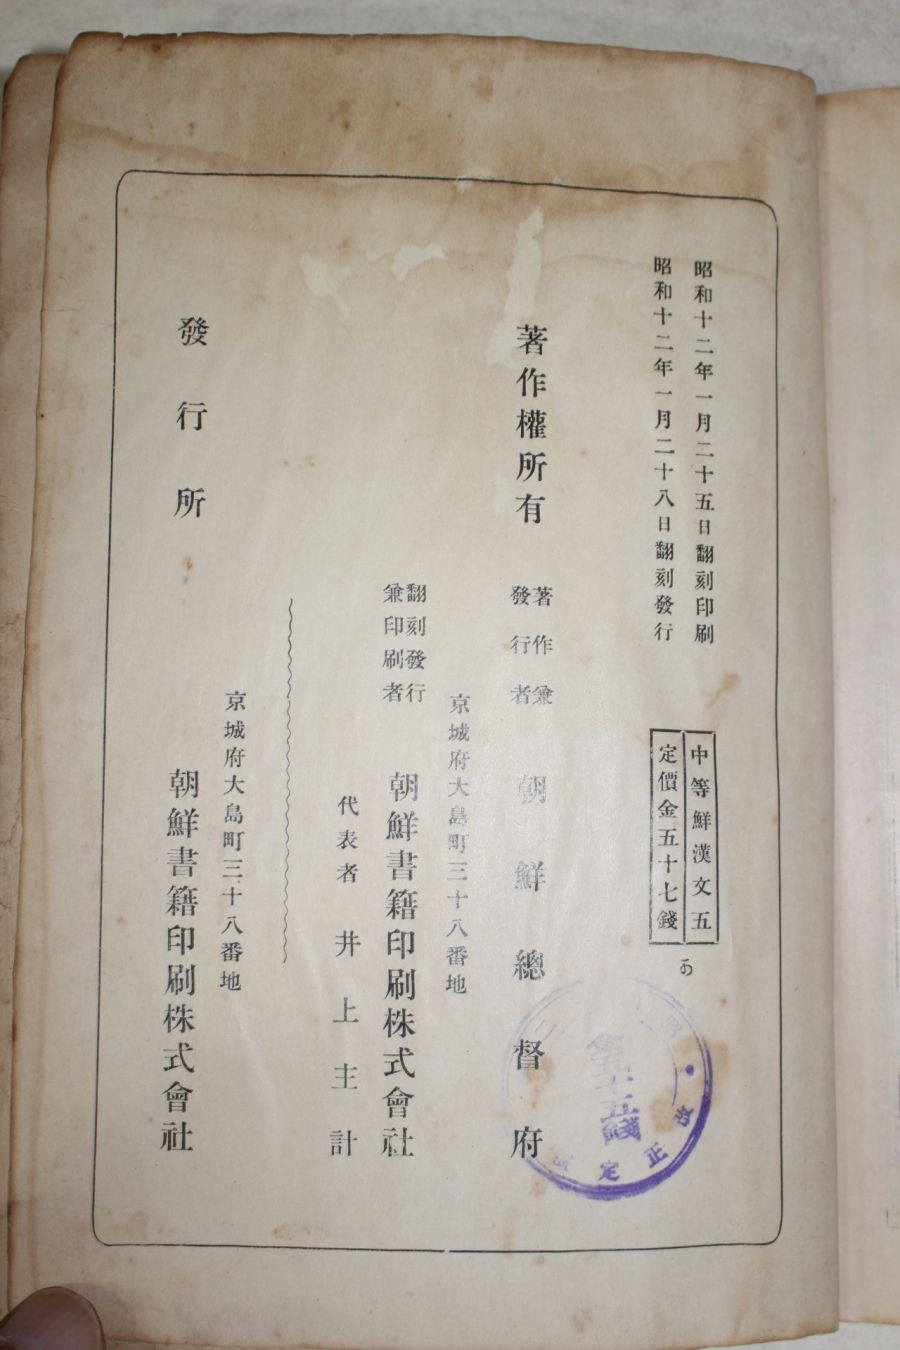 昭和十二年一月二十五日翻刻印刷
昭和十二年一月二十八日翻刻發行
中等鮮漢文五
定價金五十七錢
改正定
五錢
著作權所有
著作兼
發行者
朝鮮總督府
京城府大島町三十八番地
翻刻發行
兼印刷者
朝鮮書籍印刷株式會社
代表者 井上主計
京城府大島町三十八番地
發行所
朝鮮書籍印刷株式會社